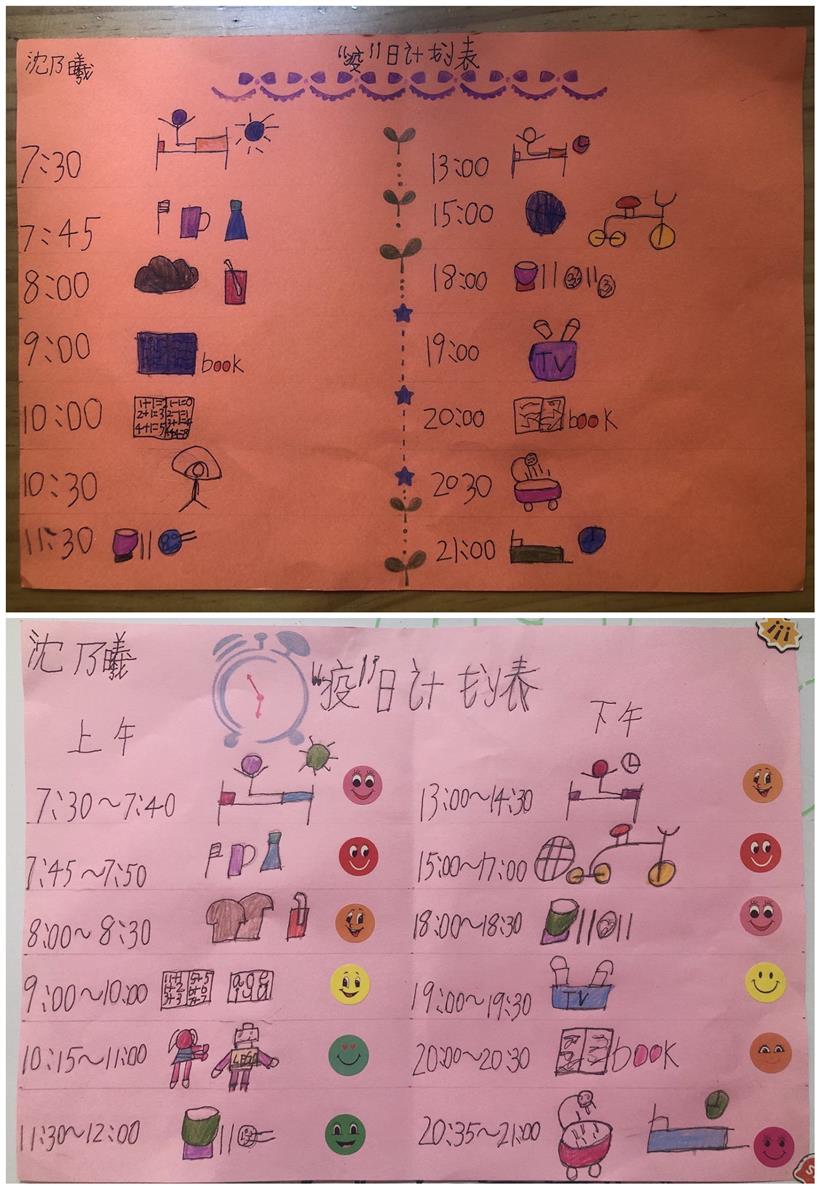 沈乃曦
“疫”日计划表
7:30
7:45
8:00
9:00 book
10:00
10:30
11:30
13:00
15:00
18:00
19:00 TV
20:00 book
20:30
21:00
沈乃曦
“疫”日计划表
上午
下午
7:30～7:40
7:45～7:50
8:00～8:30
9:00～10:00
10:15～11:00
11:30～12:00
13:00～14:30
15:00～17:00
18:00～18:30
19:00～19:30 TV
20:00～20:30 book
20:35～21:00